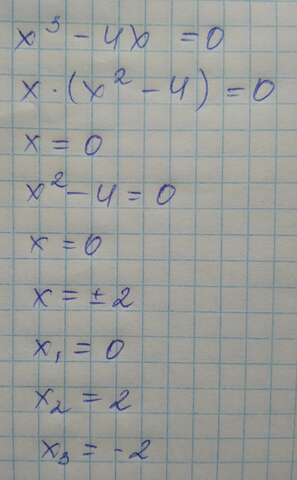 x³ - 4x = 0
x · (x² - 4) = 0
x = 0
x² - 4 = 0
x = 0
x = ± 2
x₁ = 0
x₂ = 2
x₃ = -2